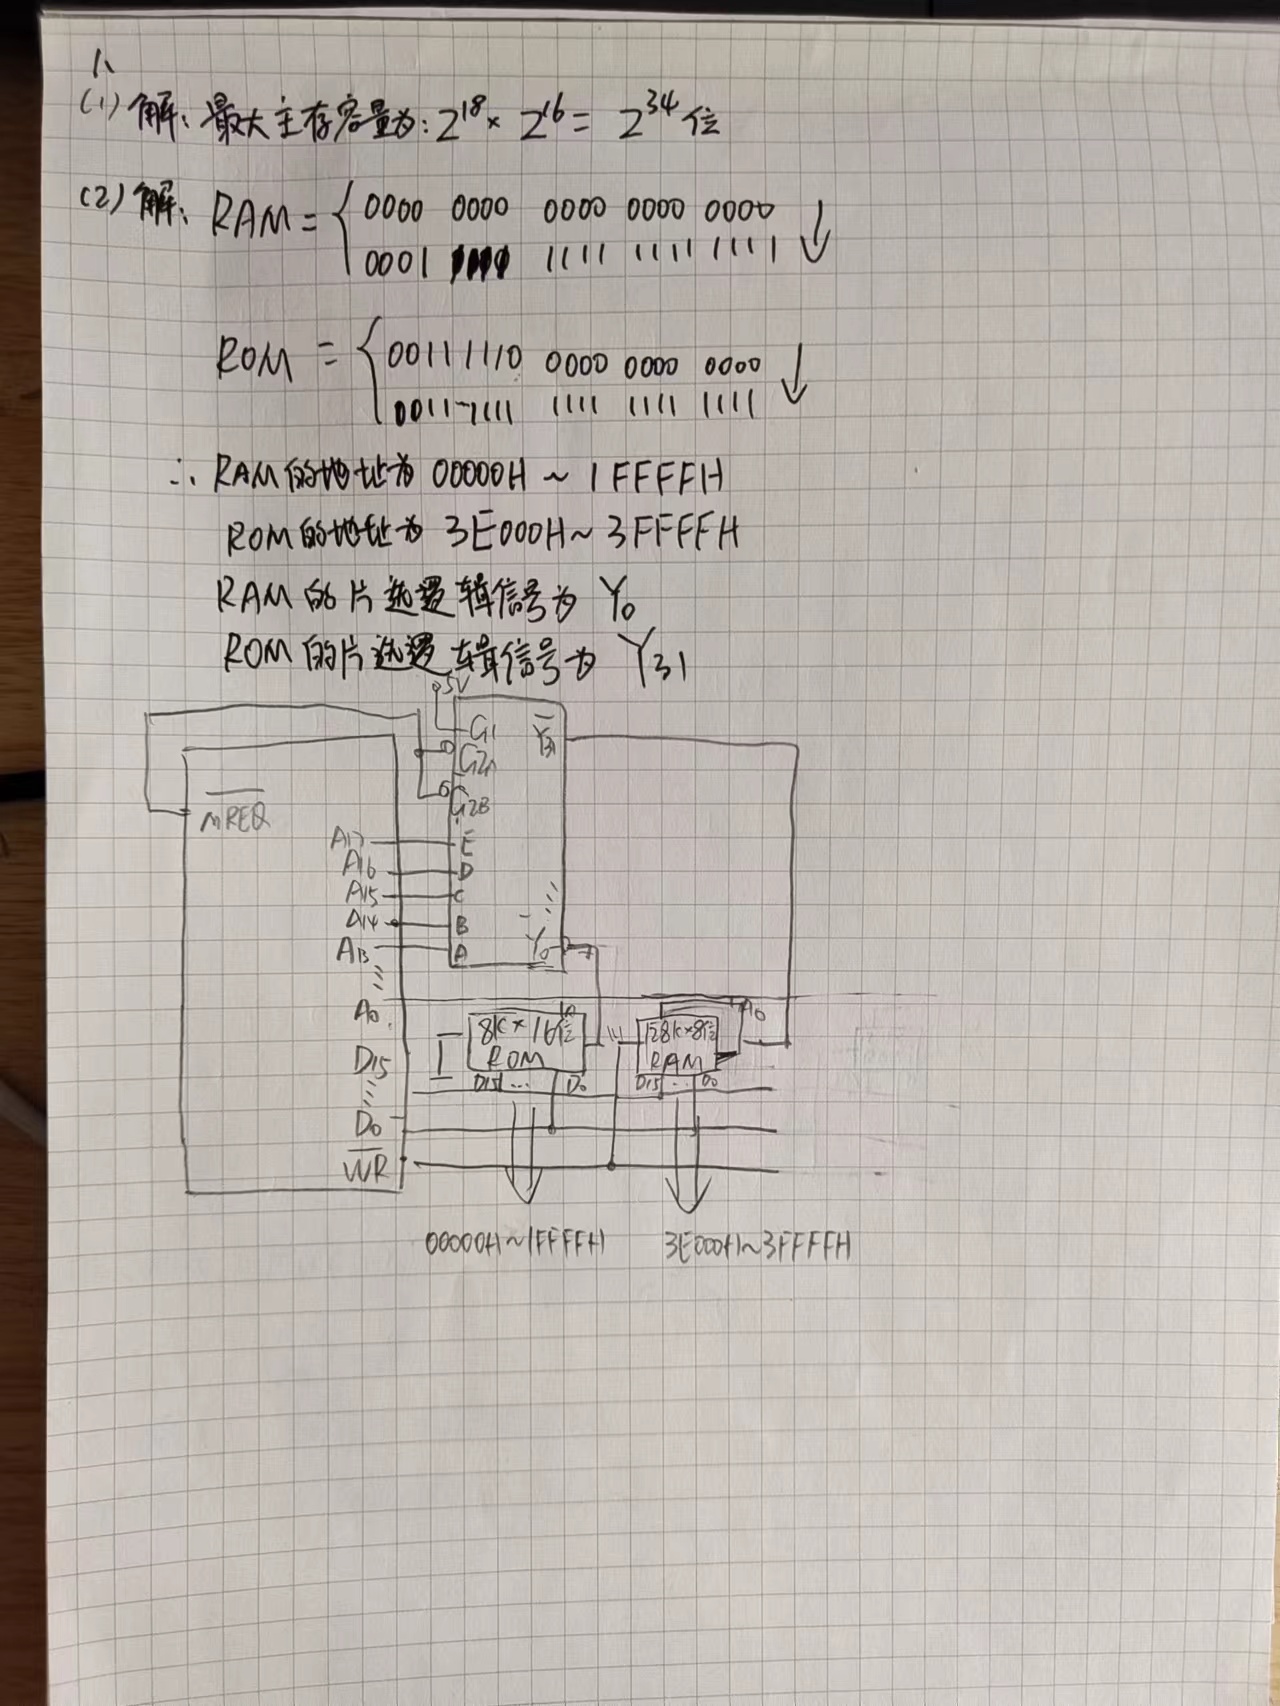 1、
(1) 解: 最大主存容量为: 2^18 × 2^16 = 2^34 位
(2) 解: RAM = { 0000 0000 0000 0000 0000 ↓
0001 1111 1111 1111 1111
ROM = { 0011 1110 0000 0000 0000 ↓
0011 1111 1111 1111 1111
∴ RAM的地址为 00000H ~ 1FFFFH
ROM的地址为 3E000H ~ 3FFFFH
RAM的片选逻辑信号为 Y0
ROM的片选逻辑信号为 Y31
5V
G1 Y31
G2A
MREQ G2B
A17 E
A16 D
A15 C
A14 B
A13 A Y0
A0 A0
8K×16位 128K×8位
ROM RAM
D15 D15 ... D0 D15 ... D0
D0
WR
00000H~1FFFFH 3E000H~3FFFFH